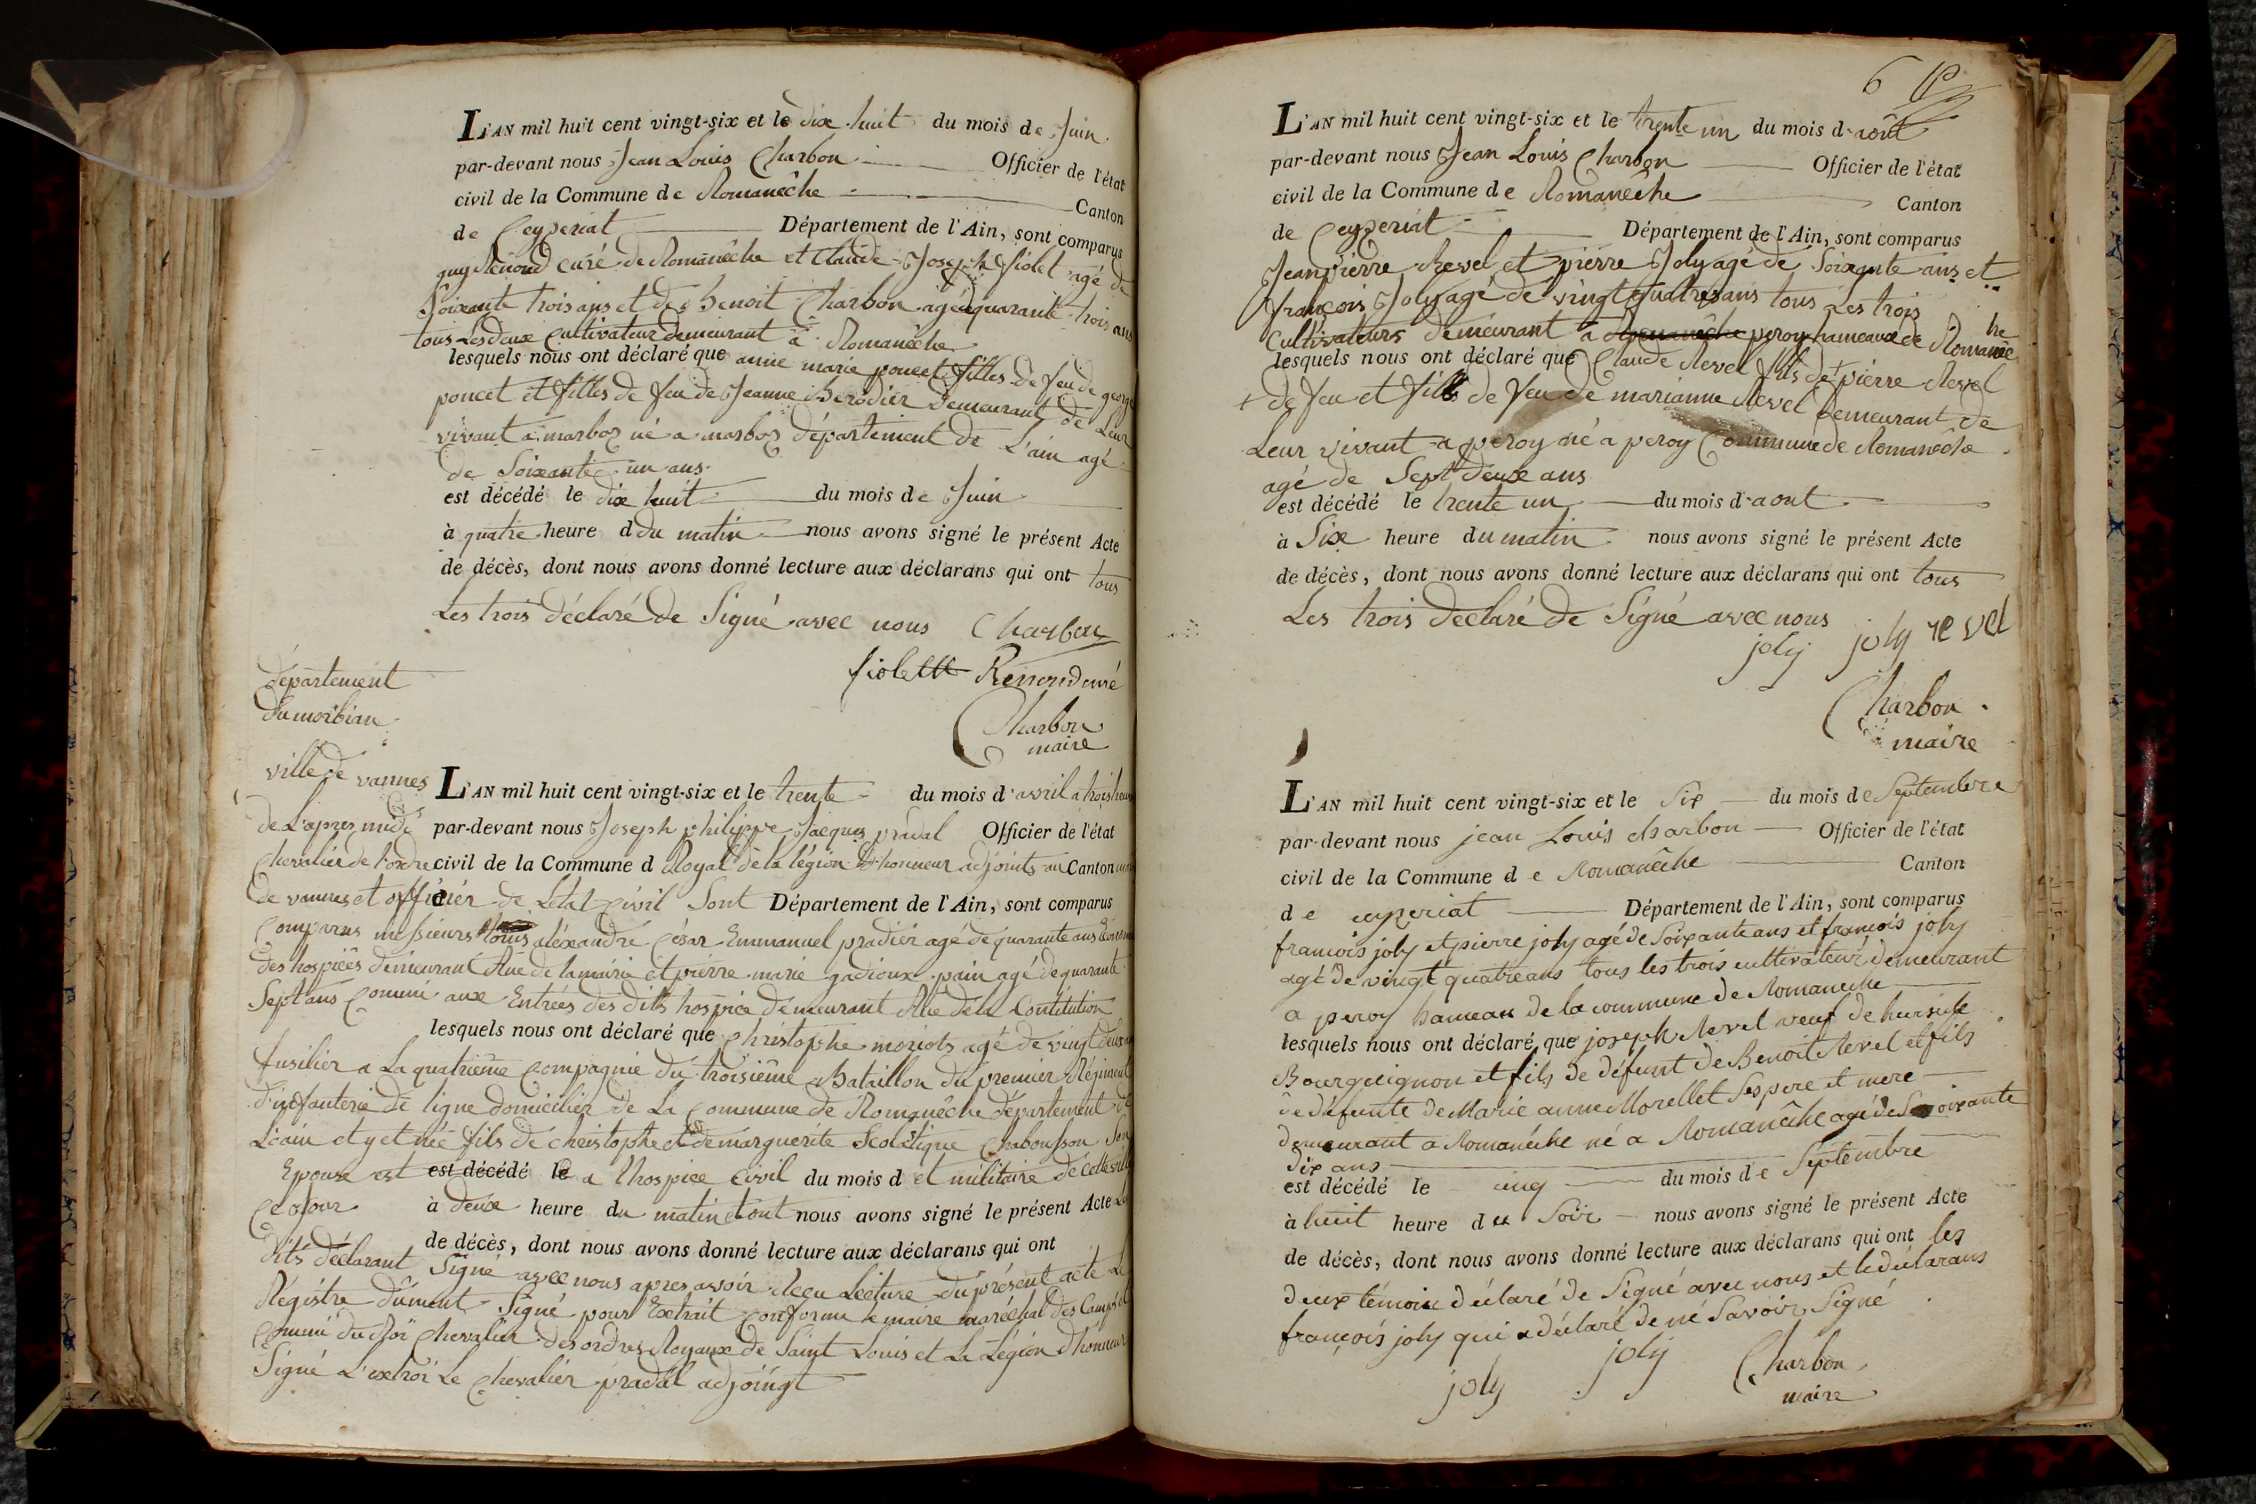 L'AN mil huit cent vingt-six et le dix huit du mois de Juin
par-devant nous Jean Louis Charbon Officier de l'état
civil de la Commune de Romanêche Canton
de Ceyzeriat Département de l'Ain, sont comparus
guy Renond curé de Romanêche et Claude Joseph fiolet agé de
Soixante trois ans et de Benoit Charbon agé de quarante trois ans
tous Les deux Cultivateur demeurant à Romanêche
lesquels nous ont déclaré que anne marie poncet filles de feu de george
poncet et filles de feu de Jeanne Berodier demeurant de Leur
vivant a marboz né a marboz département de L'ain agé
de Soixante un ans
est décédé le dix huit du mois de Juin
à quatre heure d du matin nous avons signé le présent Acte
de décès, dont nous avons donné lecture aux déclarans qui ont tous
Les trois déclaré de Signé avec nous Charbon
fiolett Renond curé
Charbon
maire
département
du morbian
ville de vannes L'AN mil huit cent vingt-six et le trente du mois d'avril a trois heure
de L'apres midi par-devant nous Joseph philippe Jacques pradal Officier de l'état
Chevalier de l'ordre civil de la Commune d Royal de la légion d'honneur adjoints au Canton
de vannes et officier de L'etat civil Sont Département de l'Ain, sont comparus
Comparus messieurs aléxandre César Emmanuel pradier agé de quarante ans
des hospices demeurant Rue de la mairie et pierre marie gadioux pain agé de quarante
Sept ans Commi aux Entrées des dits hospice demeurant Rue de la Contitution
lesquels nous ont déclaré que Christophe moriots agé de vingt deux
fusilier a La quatrième Compagnie du troisième Bataillon du premier Régiment
d'infanterie de ligne domicilier de La Commune de Romanêche département de
L'ain et y et née fils de Christophe et de marguerite Scolétique Chabousson Son
Epouse est est décédé le a l'hospice Civil du mois d et militaire de cette ville
Ce jour à deux heure du matin et ont nous avons signé le présent Acte Les
dits déclarant de décès, dont nous avons donné lecture aux déclarans qui ont
Signé avec nous apres avoir Recu Lecture du présent acte Le
Régistre dûment Signé pour Extrait conforme le maire maréchal des Camps et
Commi du Roi Chevalier des ordres Royaux de Saint Louis et La Légion d'honneur
Signé L'extroi Le Chevalier pradal adjoingt
6
L'AN mil huit cent vingt-six et le trente un du mois d'aôut
par-devant nous Jean Louis Charbon Officier de l'état
civil de la Commune de Romanêche Canton
de Ceyzeriat Département de l'Ain, sont comparus
Jean pierre Revel et pierre Joly agé de Soixante ans et
françois Joly agé de vingt quatre ans tous Les trois
Cultivateurs demeurant a Romanêche peroy hameaux de Romanêche
lesquels nous ont déclaré que Claude Revel fils de + pierre Revel
+ de feu et fils de feu de marianne Revel demeurant de
Leur vivant a peroy né a peroy Commune de Romanêche
agé de Sept deux ans
est décédé le trente un du mois d'aout
à Six heure du matin nous avons signé le présent Acte
de décès, dont nous avons donné lecture aux déclarans qui ont tous
Les trois déclaré de Signé avec nous
joly joly revel
Charbon
maire
L'AN mil huit cent vingt-six et le Six du mois de Septembre
par-devant nous jean Louis charbon Officier de l'état
civil de la Commune de Romanêche Canton
de ceyzeriat Département de l'Ain, sont comparus
francois joly et pierre joly agé de Soixante ans et francois joly
agé de vingt quatre ans tous les trois cultivateur demeurant
a peroy hameau de la commune de Romaneche
lesquels nous ont déclaré que joseph Revel veuf de
Bourguignon et fils de défunt de Benoit Revel et fils
de défunte de Marie anne Morellet Ses pere et mere
demeurant a Romanêche né a Romanêche agé de Soixante
dix ans
est décédé le cinq du mois de Septembre
à huit heure du Soir nous avons signé le présent Acte
de décès, dont nous avons donné lecture aux déclarans qui ont les
deux témoin déclaré de Signé avec nous et le déclarans
françois joly qui a déclaré de né Savoir Signé
joly joly Charbon
maire